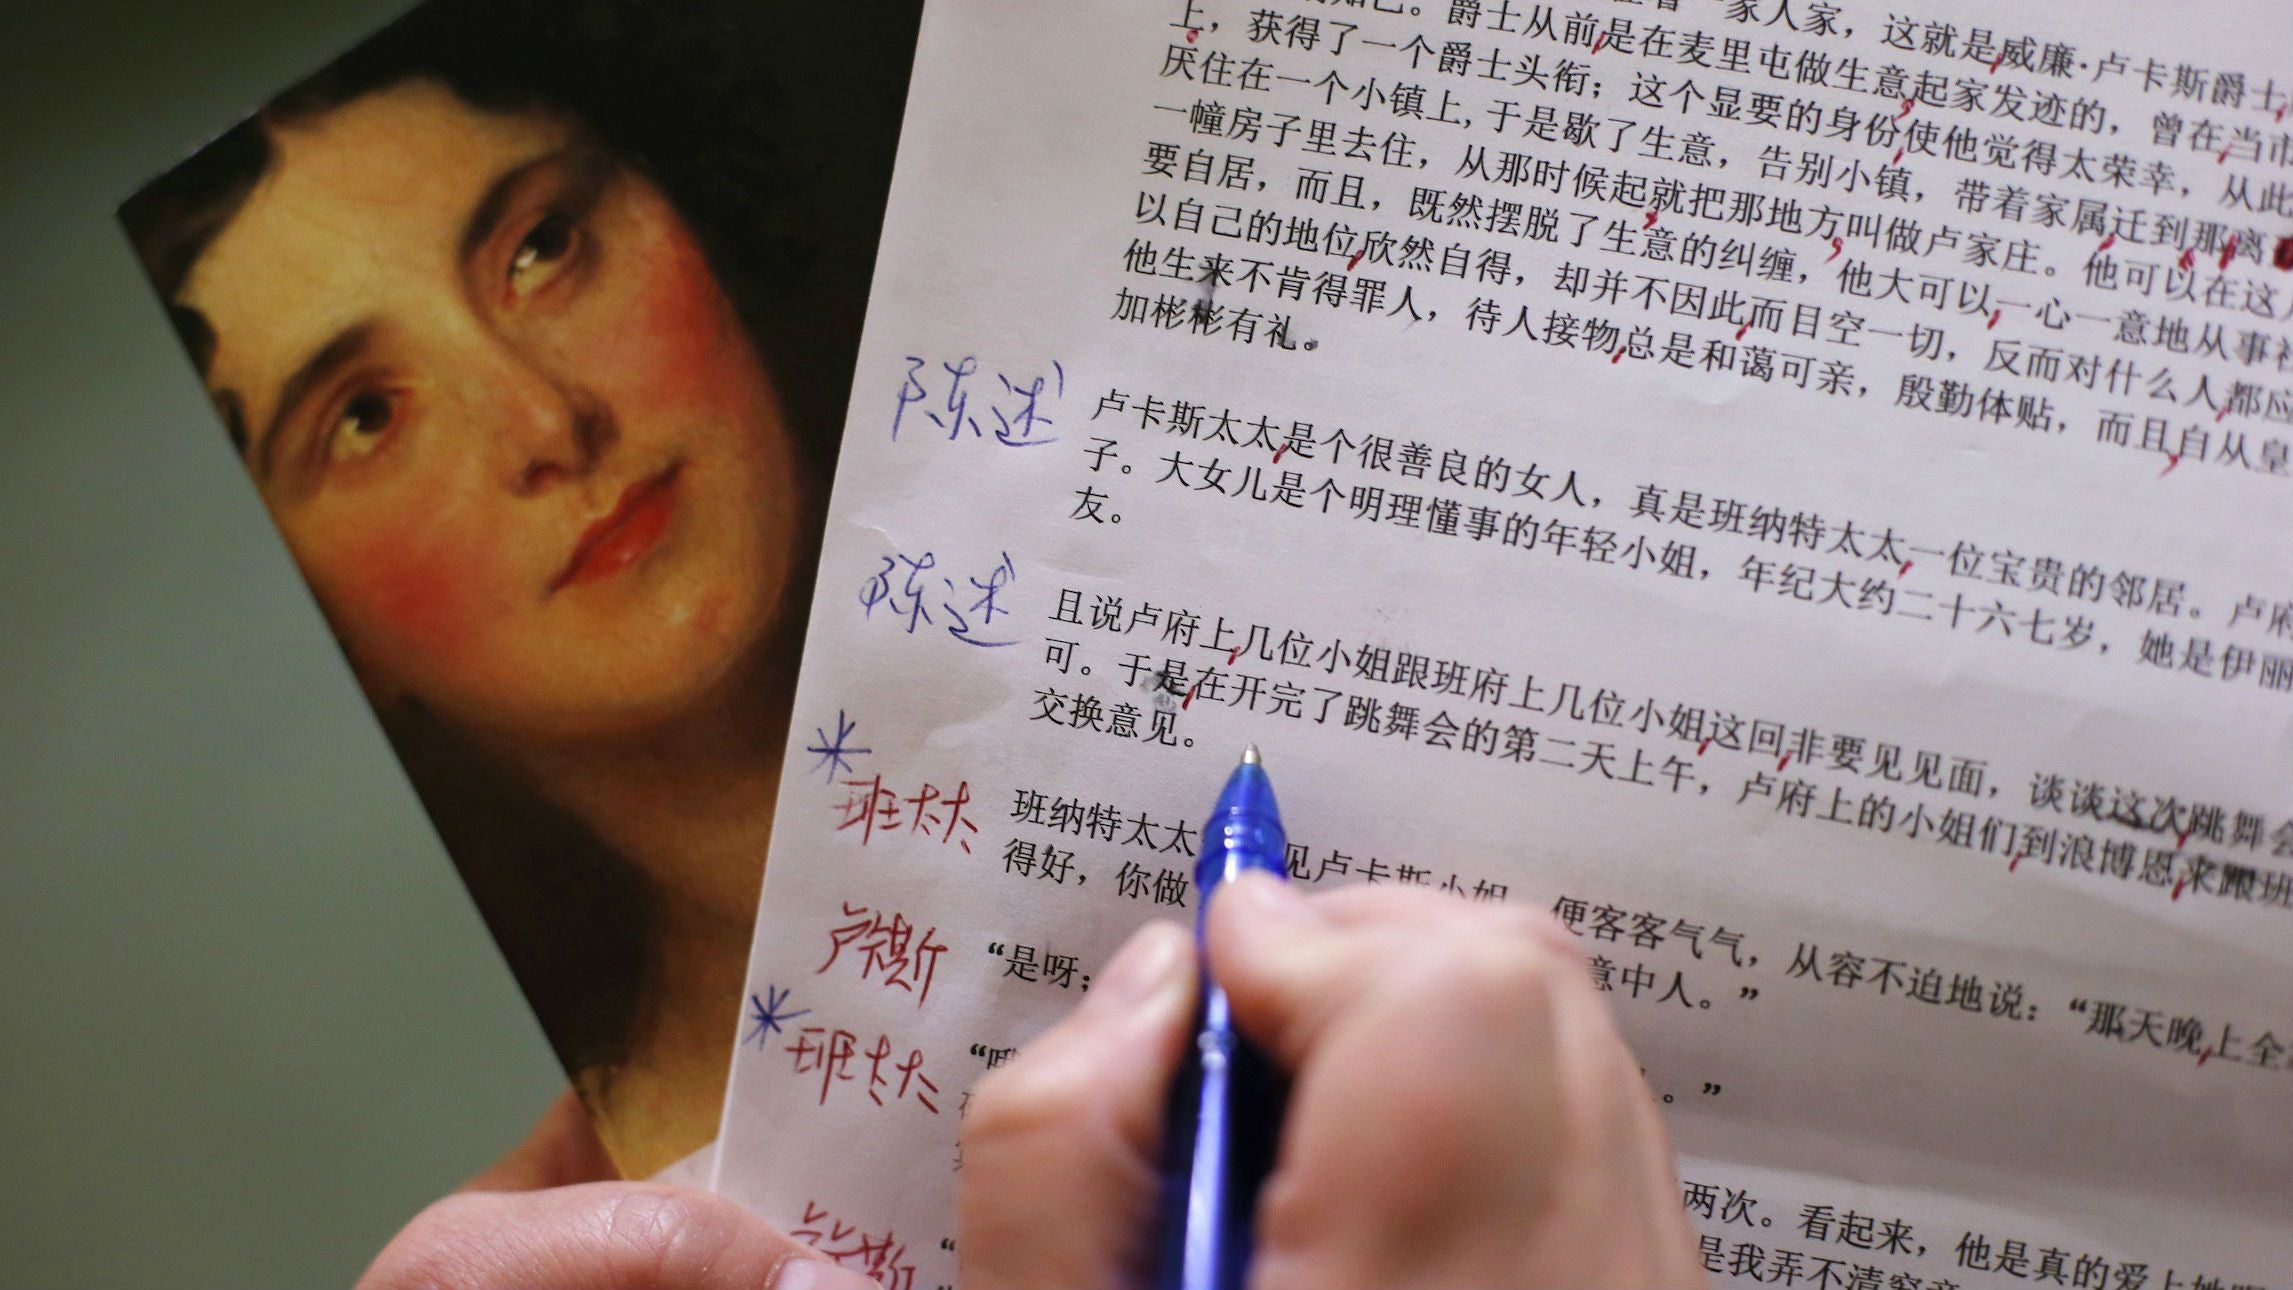 一家人家，这就是威廉·卢卡斯爵士
爵士从前是在麦里屯做生意起家发迹的，曾在当市
上，获得了一个爵士头衔；这个显要的身份使他觉得太荣幸，从此
厌住在一个小镇上，于是歇了生意，告别小镇，带着家属迁到那离
一幢房子里去住，从那时候起就把那地方叫做卢家庄。他可以在这
要自居，而且，既然摆脱了生意的纠缠，他大可以一心一意地从事社
以自己的地位欣然自得，却并不因此而目空一切，反而对什么人都应
他生来不肯得罪人，待人接物总是和蔼可亲，殷勤体贴，而且自从皇
加彬彬有礼。
陈述
卢卡斯太太是个很善良的女人，真是班纳特太太一位宝贵的邻居。卢府
子。大女儿是个明理懂事的年轻小姐，年纪大约二十六七岁，她是伊丽
友。
陈述
且说卢府上几位小姐跟班府上几位小姐这回非要见见面，谈谈这次跳舞会
可。于是在开完了跳舞会的第二天上午，卢府上的小姐们到浪博恩来跟班
交换意见。
*
班太太
班纳特太太 见卢卡斯小姐，便客客气气，从容不迫地说：“那天晚上全
得好，你做
卢卡斯
“是呀； 意中人。”
*
班太太
“哦 。”
两次。看起来，他是真的爱上她
是我弄不清究竟